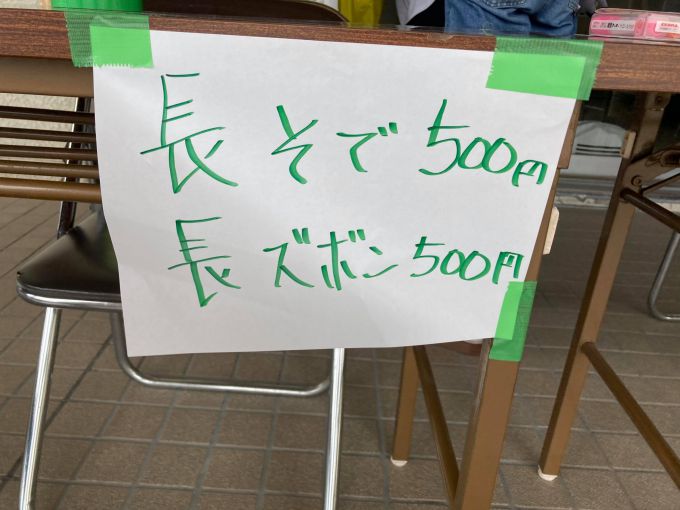 長そで500円
長ズボン500円
ZEBRA